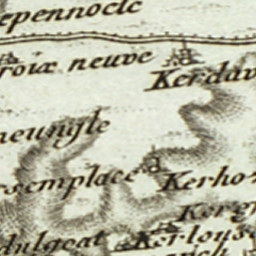 epennocle
roix neuve
Kerdav
neungle
semplace
Kerho
Kergr
dulgeat
Kerlous